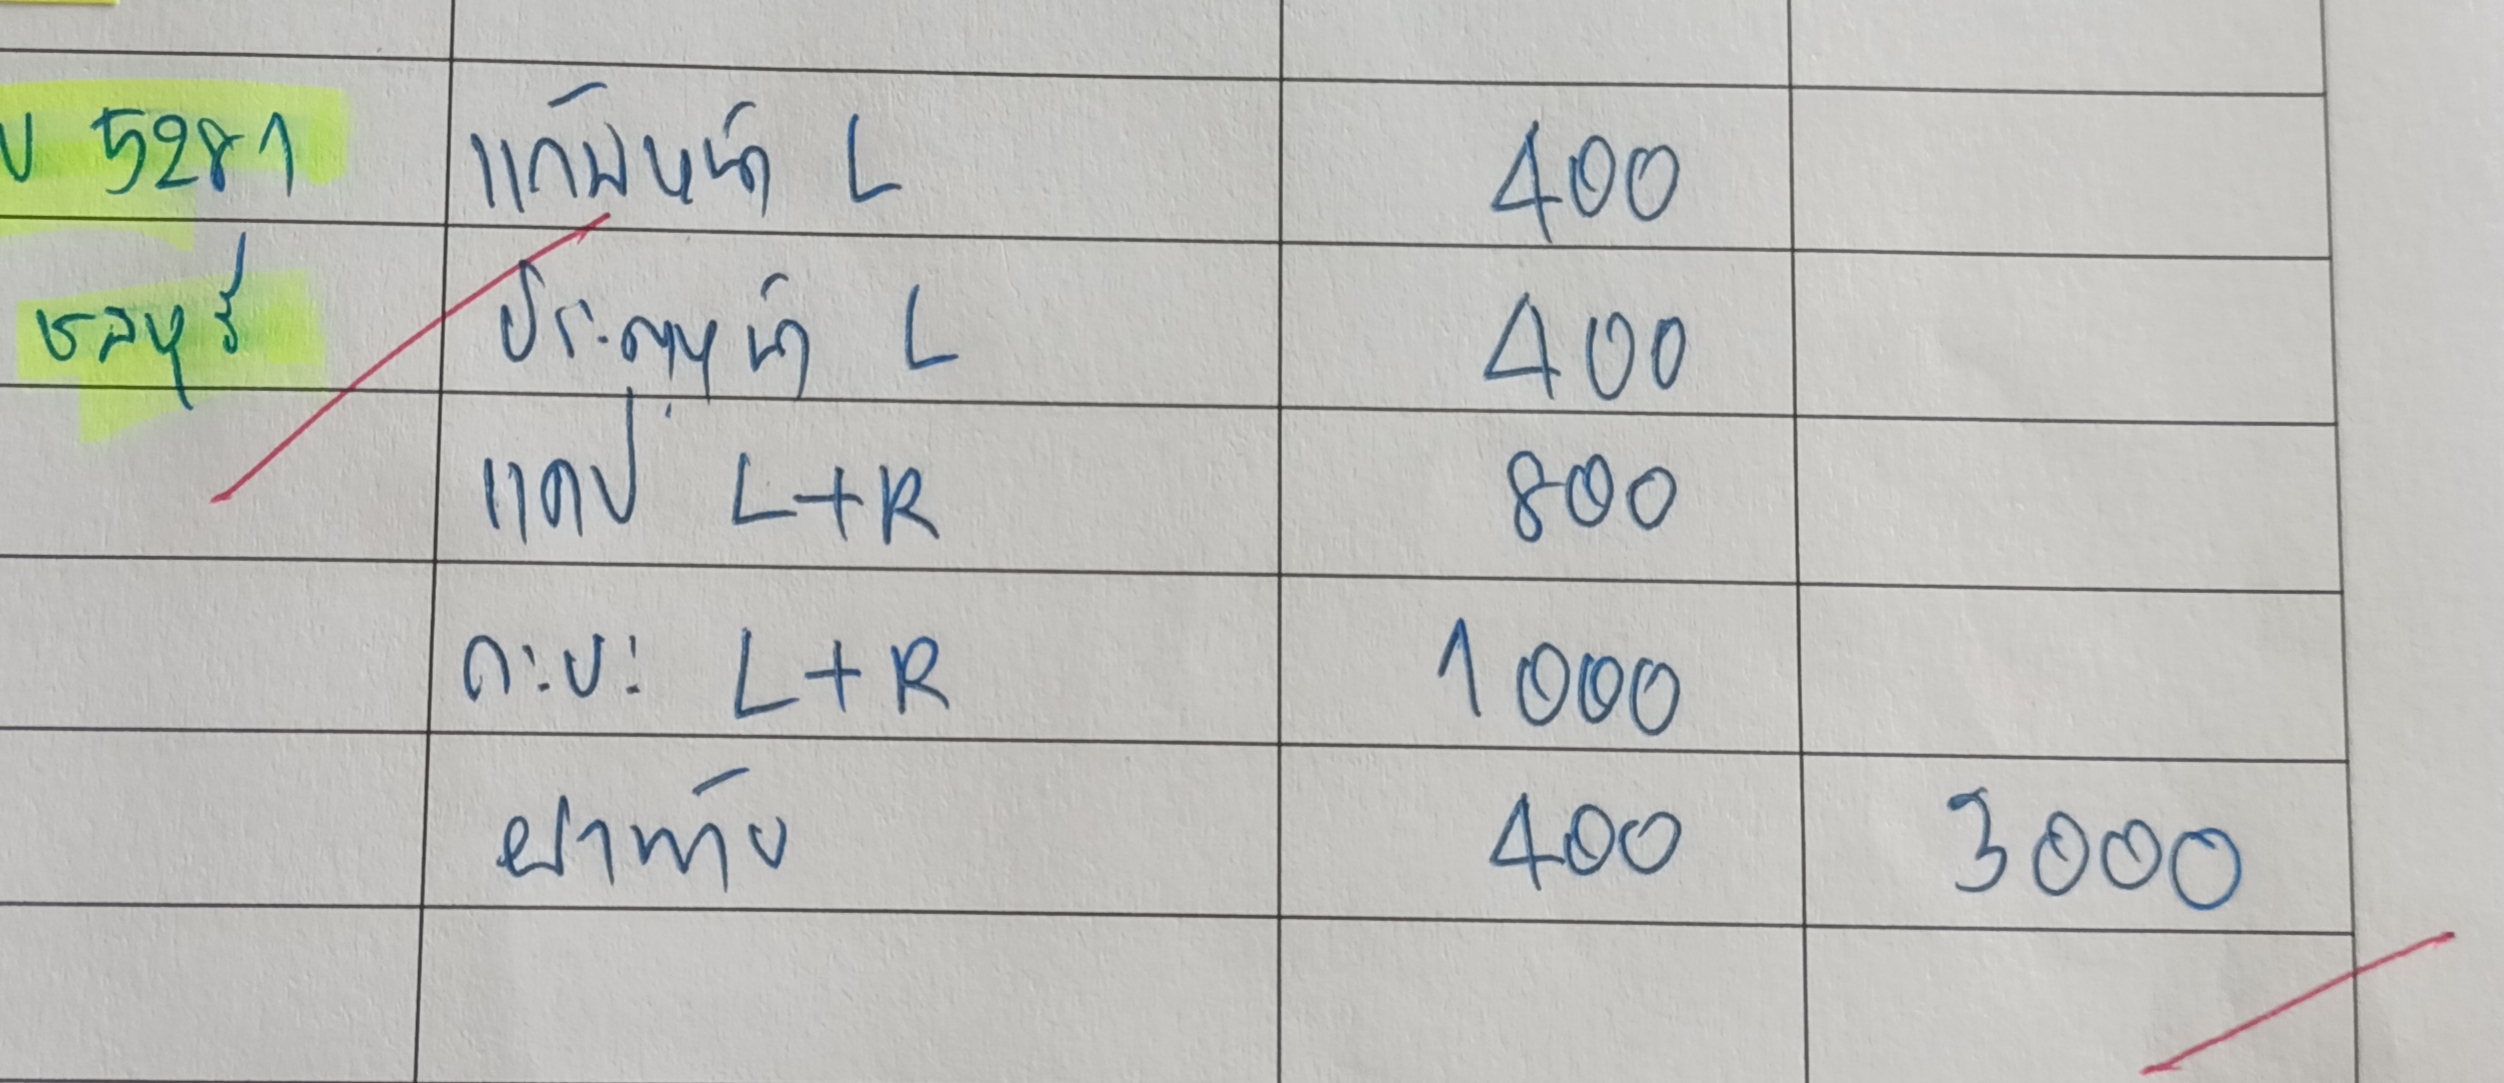 บ 5281 แก้มหน้า L 400
ชลบุรี ประตูหน้า L 400
แคป L+R 800
กะบะ L+R 1000
ฝาท้าย 400 3000